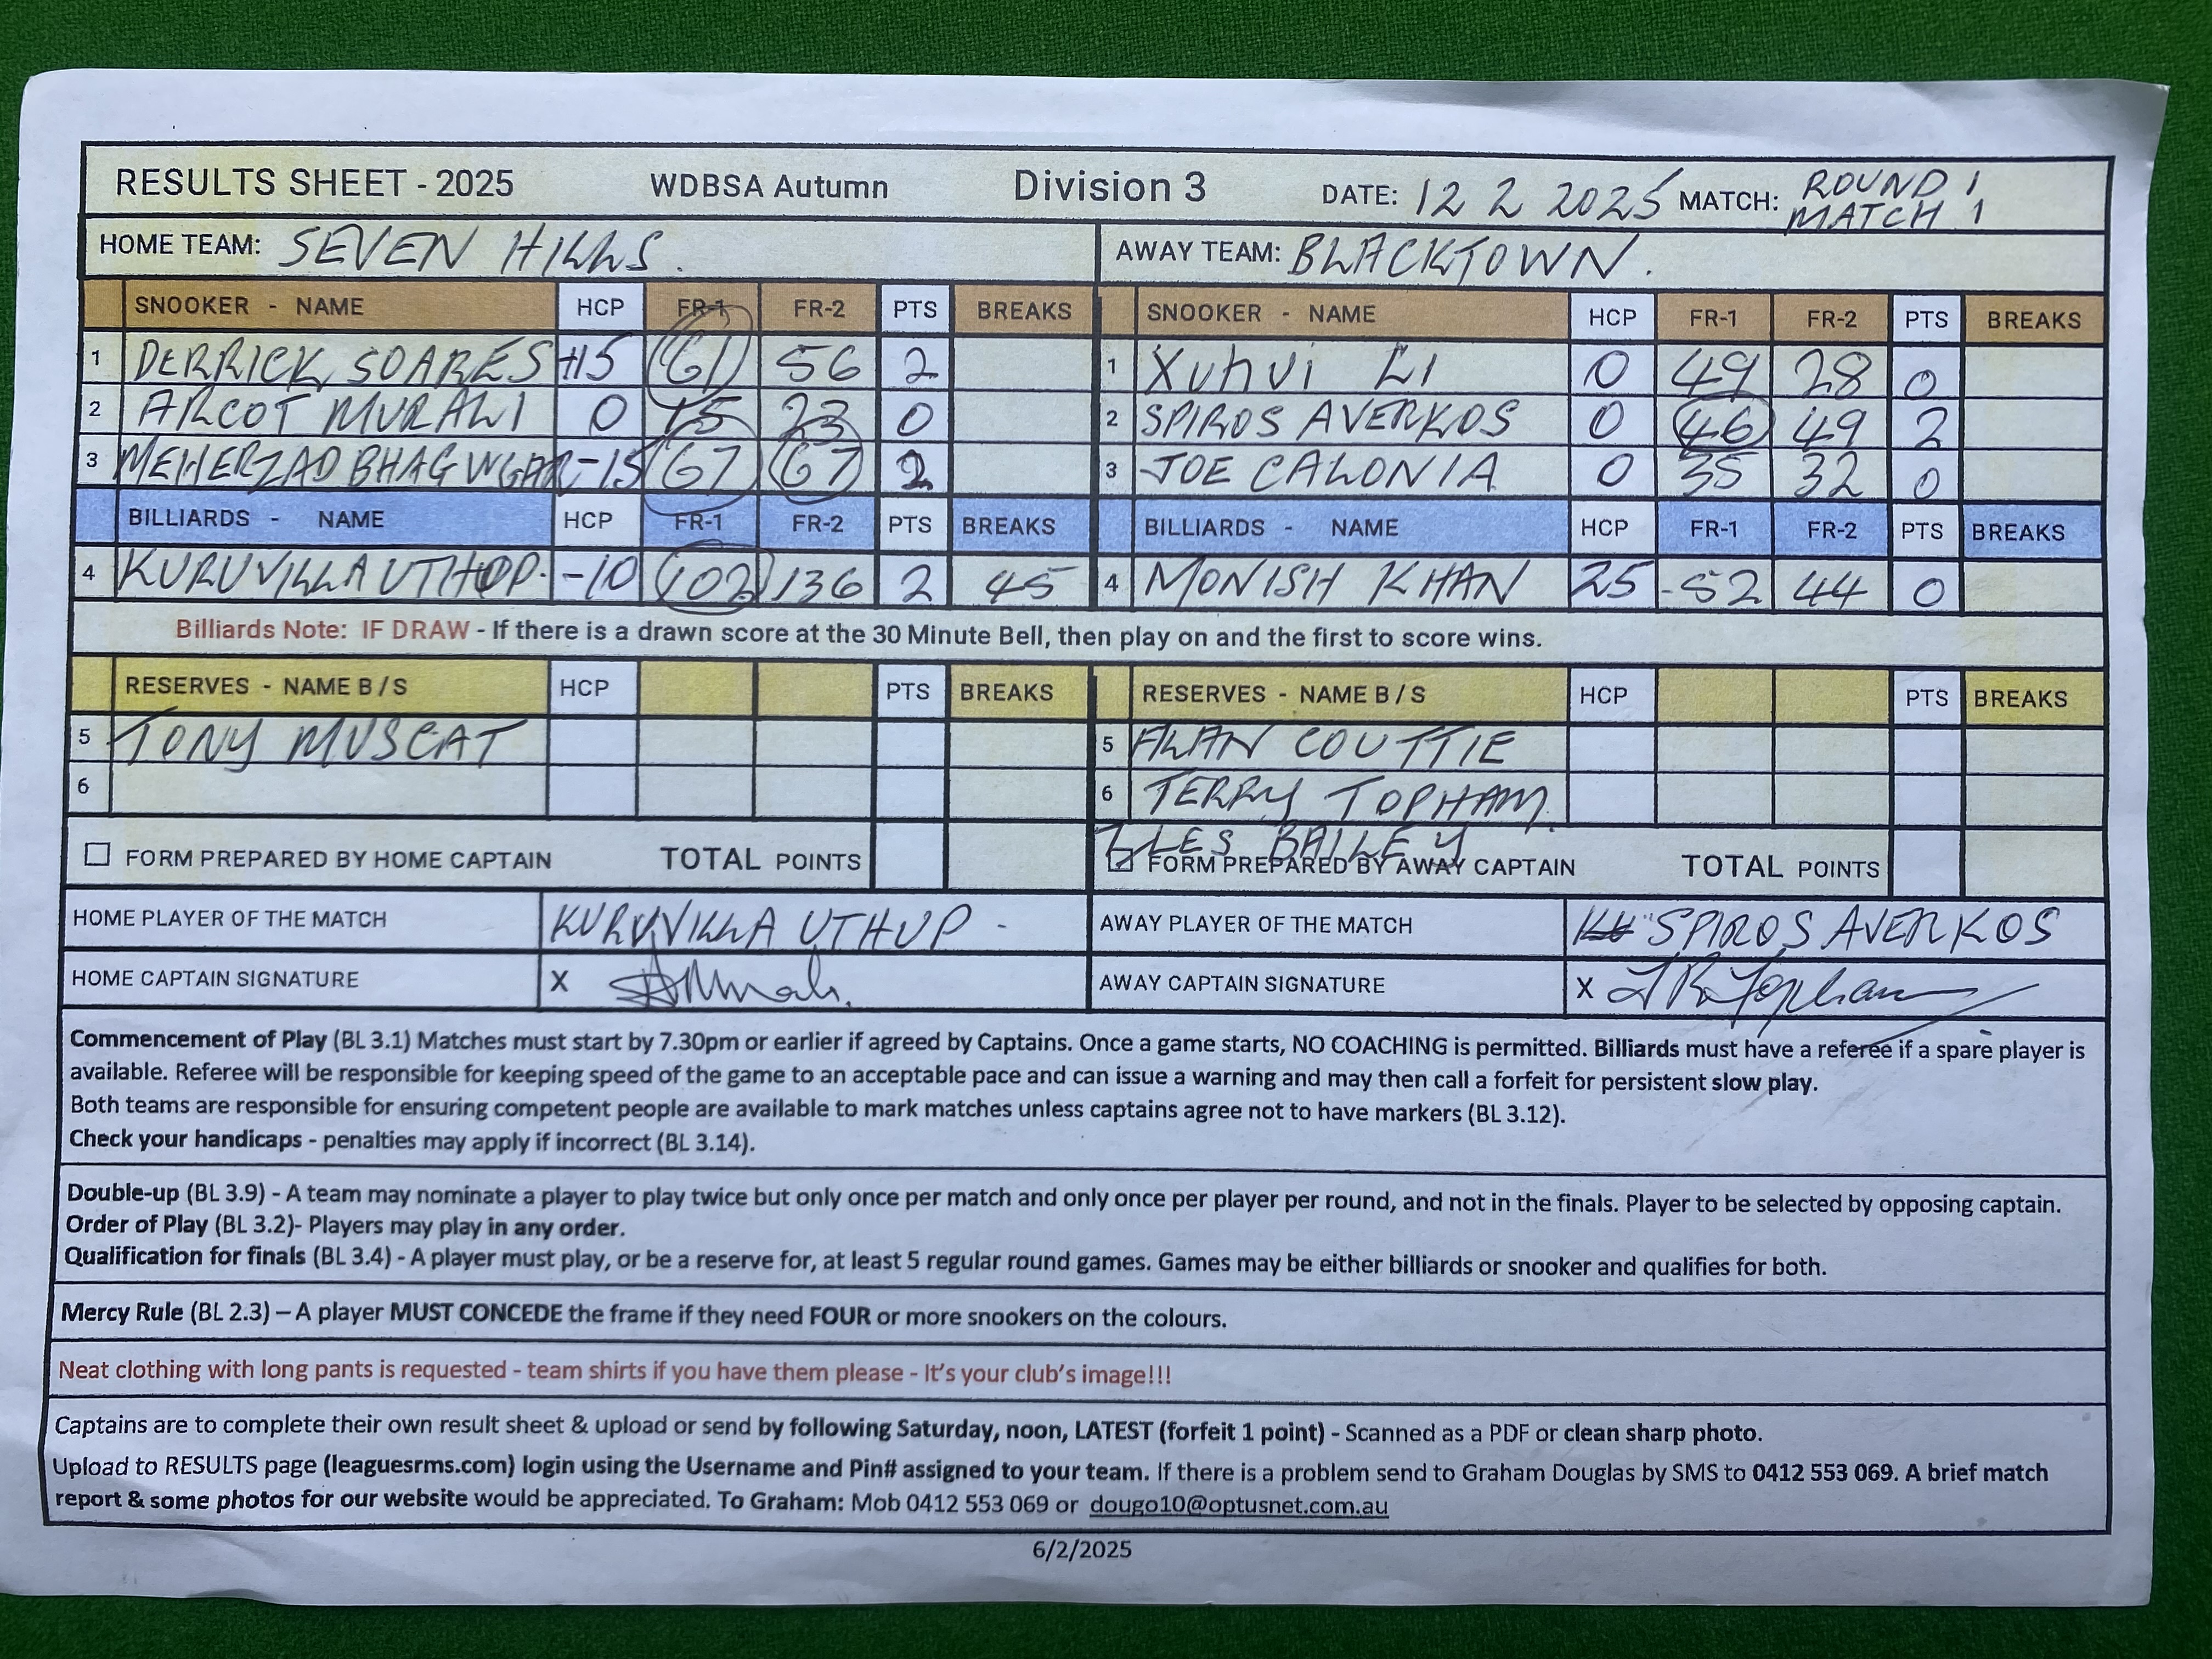 RESULTS SHEET - 2025 WDBSA Autumn Division 3 DATE: 12 2 2025 MATCH: ROUND 1 MATCH 1
HOME TEAM: SEVEN HILLS. AWAY TEAM: BLACKTOWN.
SNOOKER - NAME HCP FR-1 FR-2 PTS BREAKS SNOOKER - NAME HCP FR-1 FR-2 PTS BREAKS
1 DERRICK SOARES +15 61 56 2 1 XUHUI LI 0 49 28 0
2 ARCOT MURALI 0 15 23 0 2 SPIROS AVERKOS 0 46 49 2
3 MEHERZAD BHAGWGAR -15 67 67 2 3 JOE CALONIA 0 35 32 0
BILLIARDS - NAME HCP FR-1 FR-2 PTS BREAKS BILLIARDS - NAME HCP FR-1 FR-2 PTS BREAKS
4 KURUVILLA UTHOP. -10 102 136 2 45 4 MONISH KHAN 25 -52 44 0
Billiards Note: IF DRAW - If there is a drawn score at the 30 Minute Bell, then play on and the first to score wins.
RESERVES - NAME B / S HCP PTS BREAKS RESERVES - NAME B / S HCP PTS BREAKS
5 TONY MUSCAT 5 ALAN COUTTIE
6 6 TERRY TOPHAM.
7 LES BAILEY
FORM PREPARED BY HOME CAPTAIN TOTAL POINTS FORM PREPARED BY AWAY CAPTAIN TOTAL POINTS
HOME PLAYER OF THE MATCH KURUVILLA UTHUP - AWAY PLAYER OF THE MATCH SPIROS AVERKOS
HOME CAPTAIN SIGNATURE X AWAY CAPTAIN SIGNATURE X
Commencement of Play (BL 3.1) Matches must start by 7.30pm or earlier if agreed by Captains. Once a game starts, NO COACHING is permitted. Billiards must have a referee if a spare player is
available. Referee will be responsible for keeping speed of the game to an acceptable pace and can issue a warning and may then call a forfeit for persistent slow play.
Both teams are responsible for ensuring competent people are available to mark matches unless captains agree not to have markers (BL 3.12).
Check your handicaps - penalties may apply if incorrect (BL 3.14).
Double-up (BL 3.9) - A team may nominate a player to play twice but only once per match and only once per player per round, and not in the finals. Player to be selected by opposing captain.
Order of Play (BL 3.2)- Players may play in any order.
Qualification for finals (BL 3.4) - A player must play, or be a reserve for, at least 5 regular round games. Games may be either billiards or snooker and qualifies for both.
Mercy Rule (BL 2.3) – A player MUST CONCEDE the frame if they need FOUR or more snookers on the colours.
Neat clothing with long pants is requested - team shirts if you have them please - It's your club's image!!!
Captains are to complete their own result sheet & upload or send by following Saturday, noon, LATEST (forfeit 1 point) - Scanned as a PDF or clean sharp photo.
Upload to RESULTS page (leaguesrms.com) login using the Username and Pin# assigned to your team. If there is a problem send to Graham Douglas by SMS to 0412 553 069. A brief match
report & some photos for our website would be appreciated. To Graham: Mob 0412 553 069 or dougo10@optusnet.com.au
6/2/2025